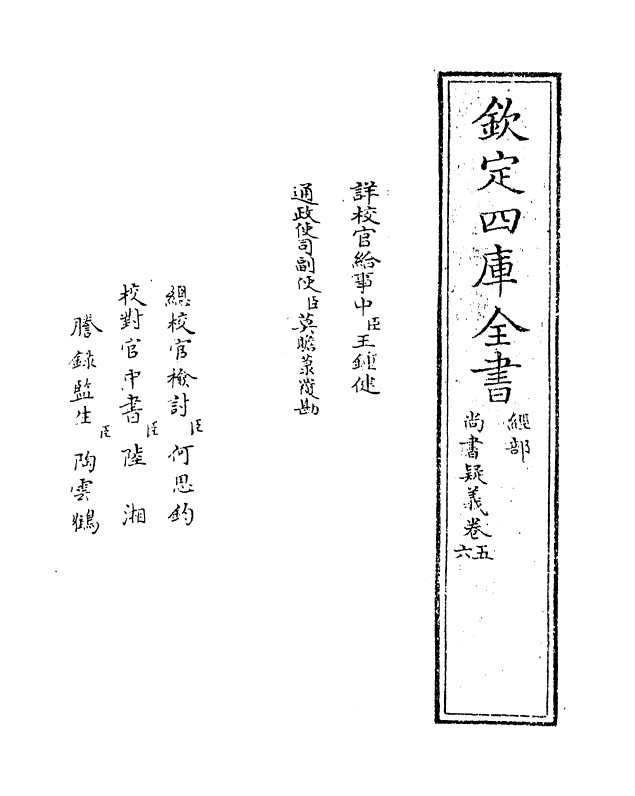 欽定四庫全書
經部
尚書疑義卷五六
詳校官給事中臣王鍾健
通政使司副使臣莫瞻菉覆勘
總校官檢討臣何思鈞
校對官中書臣陸湘
謄錄監生臣陶雲鶴